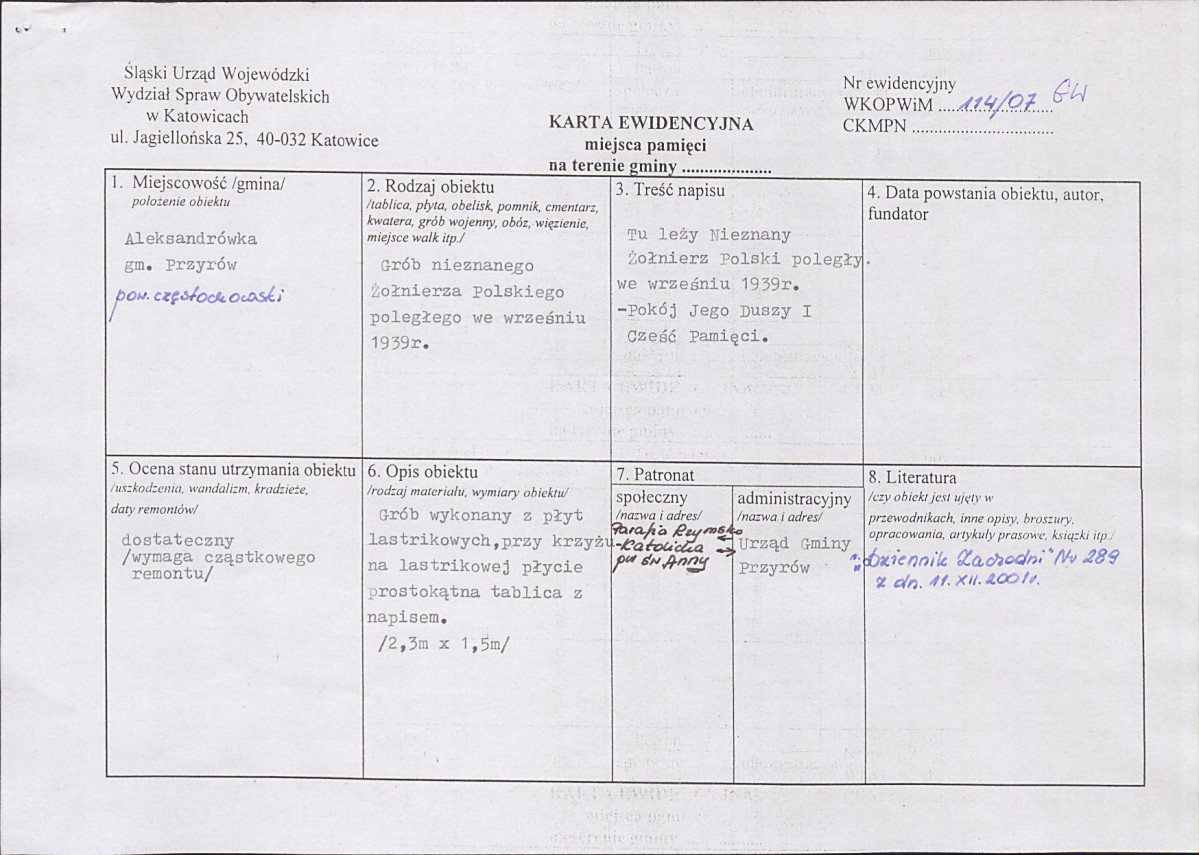 Śląski Urząd Wojewódzki
Wydział Spraw Obywatelskich
w Katowicach
ul. Jagiellońska 25, 40-032 Katowice
KARTA EWIDENCYJNA
miejsca pamięci
na terenie gminy .....................
Nr ewidencyjny
WKOPWiM ....114/07.... GW
CKMPN ................................
1. Miejscowość /gmina/
położenie obiektu
Aleksandrówka
gm. Przyrów
pow. częstochowski
2. Rodzaj obiektu
/tablica, płyta, obelisk, pomnik, cmentarz,
kwatera, grób wojenny, obóz, więzienie,
miejsce walk itp./
Grób nieznanego
Żołnierza Polskiego
poległego we wrześniu
1939r.
3. Treść napisu
Tu leży Nieznany
Żołnierz Polski poległy.
we wrześniu 1939r.
-Pokój Jego Duszy I
Cześć Pamięci.
4. Data powstania obiektu, autor,
fundator
5. Ocena stanu utrzymania obiektu
/uszkodzenia, wandalizm, kradzieże,
daty remontów/
dostateczny
/wymaga cząstkowego
remontu/
6. Opis obiektu
/rodzaj materiału, wymiary obiektu/
Grób wykonany z płyt
lastrikowych,przy krzyżu
na lastrikowej płycie
prostokątna tablica z
napisem.
/2,3m x 1,5m/
7. Patronat
społeczny
/nazwa i adres/
Parafia Rzymsko
-Katolicka
pw św Anny
administracyjny
/nazwa i adres/
Urząd Gminy
Przyrów
8. Literatura
/czy obiekt jest ujęty w
przewodnikach, inne opisy, broszury,
opracowania, artykuły prasowe, książki itp./
"Dziennik Zachodni" Nr 289
z dn. 11.XII.2001r.